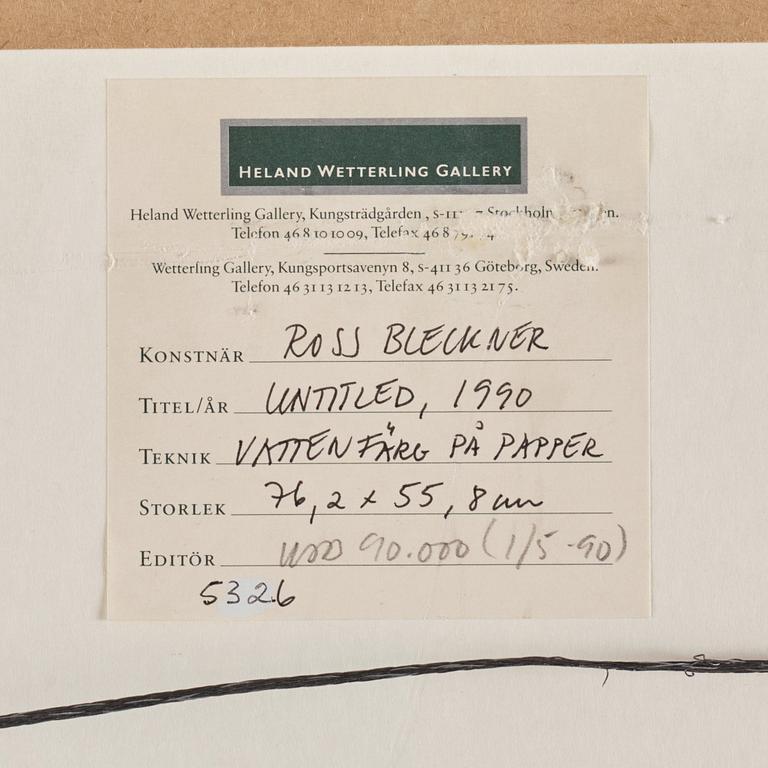 HELAND WETTERLING GALLERY
Heland Wetterling Gallery, Kungsträdgården, S-11 7 Stockholm
Telefon 46 8 10 10 09, Telefax 46 8
Wetterling Gallery, Kungsportsavenyn 8, S-411 36 Göteborg, Sweden.
Telefon 46 31 13 12 13, Telefax 46 31 13 21 75.
KONSTNÄR ROSS BLECKNER
TITEL/ÅR UNTITLED, 1990
TEKNIK VATTENFÄRG PÅ PAPPER
STORLEK 76,2 x 55,8 cm
EDITÖR USD 90.000 (1/5-90)
5326